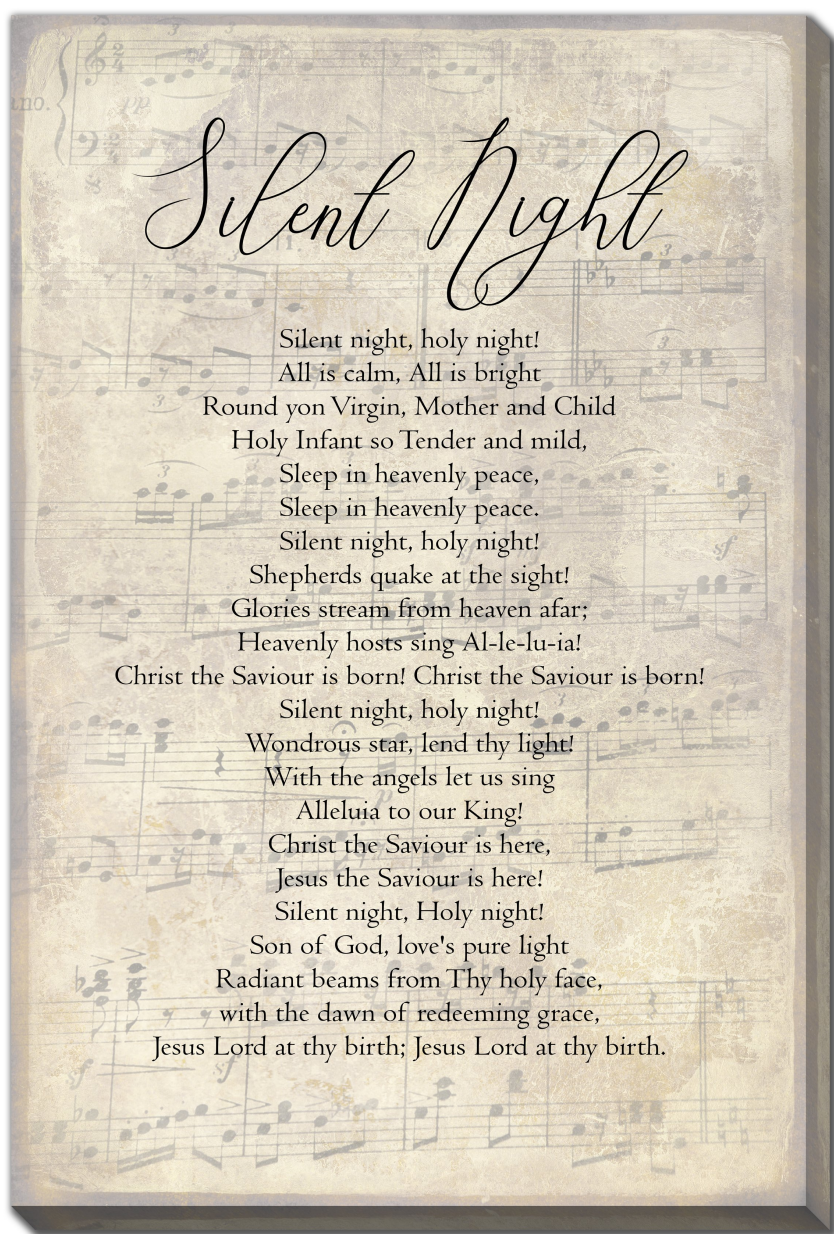 ano.
pp
Silent Night
Silent night, holy night!
All is calm, All is bright
Round yon Virgin, Mother and Child
Holy Infant so Tender and mild,
Sleep in heavenly peace,
Sleep in heavenly peace.
Silent night, holy night!
Shepherds quake at the sight!
Glories stream from heaven afar;
Heavenly hosts sing Al-le-lu-ia!
Christ the Saviour is born! Christ the Saviour is born!
Silent night, holy night!
Wondrous star, lend thy light!
With the angels let us sing
Alleluia to our King!
Christ the Saviour is here,
Jesus the Saviour is here!
Silent night, Holy night!
Son of God, love's pure light
Radiant beams from Thy holy face,
with the dawn of redeeming grace,
Jesus Lord at thy birth; Jesus Lord at thy birth.